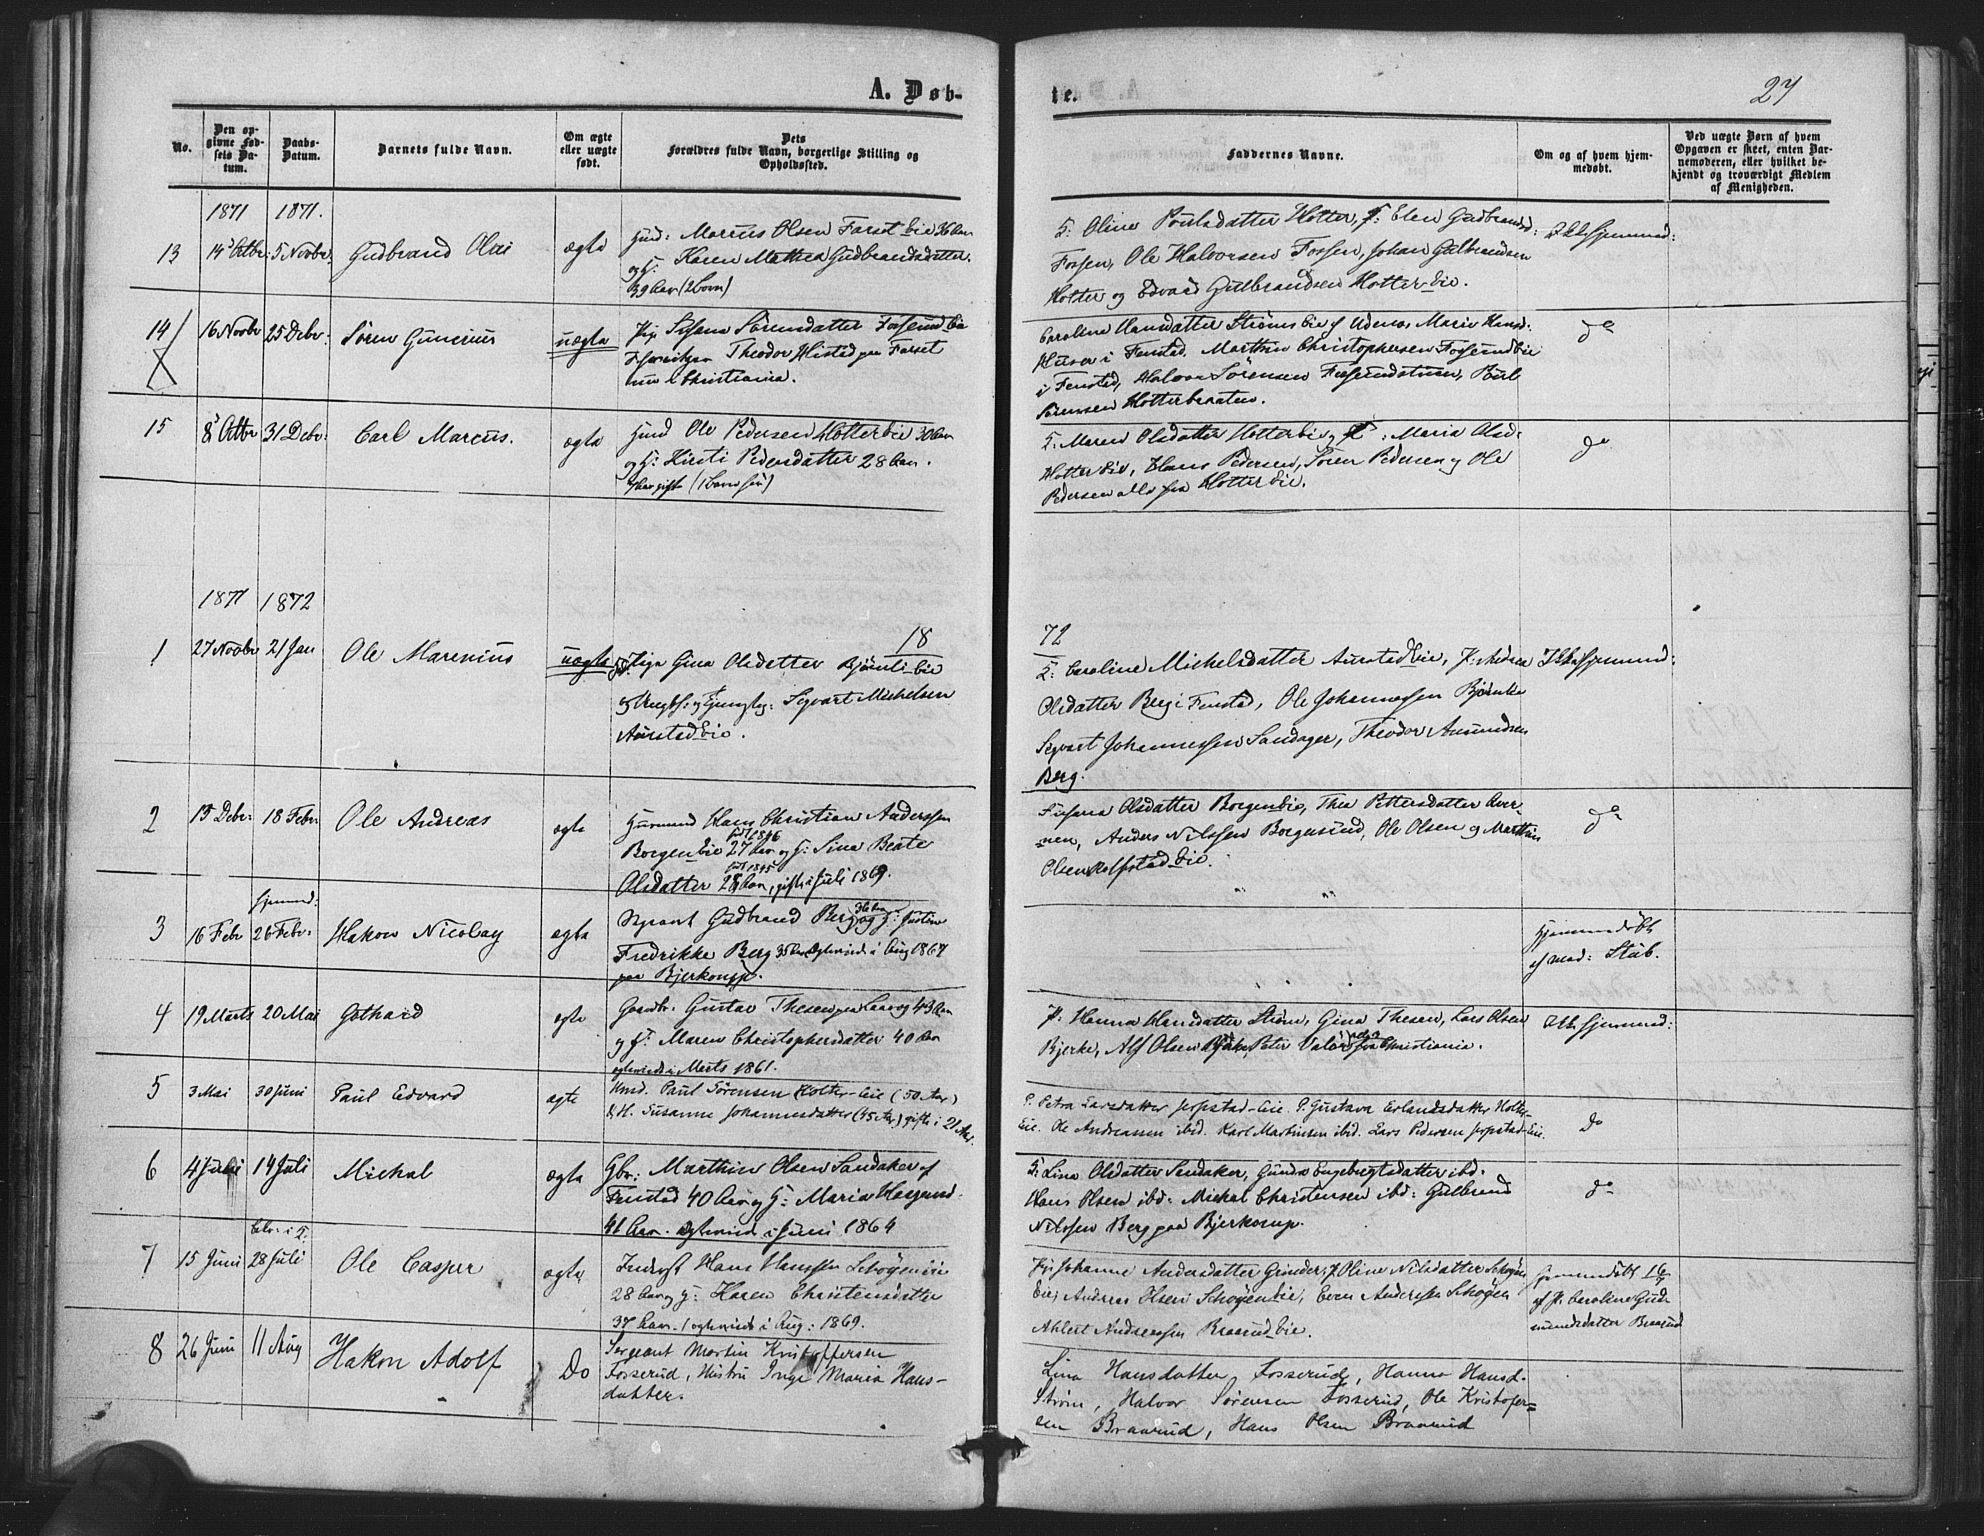 A. Døb-
te.
27
No.
Den op-
givne Fød-
sels Da-
tum.
Daabs-
Datum.
Barnets fulde Navn.
Om ægte
eller uægte
født.
Dets
Forældres fulde Navn, borgerlige Stilling og
Opholdssted.
Faddernes Navne.
Om og af hvem hjem-
medøbt.
Ved uægte Børn af hvem
Opgaven er skeet, enten Bar-
nemoderen, eller hvilket be-
kjendt og troværdigt Medlem
af Menigheden.
1871 1871.
13 14 Octbr 5 Novbr. Gudbrand Olai ægte
Marcus Olsen Farset Eie 36 Aar
og H: Karen Mathea Gudbrandsdatter.
39 Aar (2 Børn)
Oline Poulsdatter Holter, P: Elen Gudbrandsd:
Fossen, Ole Halvorsen Fossen, Johan Gulbrandsen
Holter og Edvard Gulbrandsen Holter Eie.
Ikke hjemmed:
14 16 Novbr 25 Debr: Søren Gunerius uægte
Pige Sørensdatter Fosserud Eie
Theodor paa Farset
nu i Christiania.
Caroline Hansdatter Strøms Eie af Udenes, Marie Hansd:
Huser i Fenstad, Marthin Christophersen Fosserud Eie
i Fenstad, Halvor Sørensen Poul
Sørensen Holterbraaten.
do
15 8 Octbr 31 Debr: Carl Marcus. ægte
Ole Pedersen Holter Eie 30 Aar
og H: Kirsti Pedersdatter 28 Aar.
gift (1 Barn før)
Maren Olsdatter Holter Eie, P: Maria Olsd:
Holter Eie, Hans Pedersen, Søren Pedersen og Ole
Pedersen alle fra Holter Eie.
do
1871 1872
18
72
1 27 Novbr 21 Jan Ole Marenius uægte
Pige Gina Olsdatter Bjønli Eie
og Ungk. Segvart Michelsen
Aurstad Eie.
Caroline Michelsdatter Aurstad Eie, P: Andrea
Olsdatter Berg i Fenstad, Ole Johannessen
Segvart Johannessen Sandager, Theodor Amundsen
Berg.
Ikke hjemmed:
2 13 Debr: 18 Febr: Ole Andreas ægte
Huusmand Hans Christian Anderssen
født 1846
Borgen Eie 27 Aar og H: Sina Beate
født 1845
Olsdatter 28 Aar, gift i Juli 1869.
Olsdatter Borgen Eie, Thea Pettersdatter
Anders Nilssen Borgensund, Ole Olsen og Marthin
Olsen Rolfstad Eie.
do
hjemmed:
3 16 Febr 26 Febr: Hakon Nicolay ægte
Sergeant Gudbrand Berg 36 Aar og H: Justine
Fredrikke Berg 35 Aar Egteviede i Aug 1867
paa Bjerkomp.
" "
Hjemmedøbt
af Mad: Stub.
4 19 Marts 20 Mai Gothard ægte
Gaardbr. Gustav Thesen paa 43 Aar
og H: Maren Christophersdatter 40 Aar
egteviede i Marts 1861.
P: Hanna Hansdatter Strøm, Gina Thesen, Lars Olsen
Bjerke, Alf Olsen Bjerke Peter fra Christiania.
Ikke hjemmed:
5 3 Mai 30 Juni Paul Edvard ægte
Hmd. Paul Sørensen Holter-Eie (50 Aar)
& H. Susanne Johannesdatter (45 Aar) gifte i 21 Aar.
P. Petra Larsdatter Jerpstad-Eie. P. Gustava Erlandsdatter Holter-
Eie. Ole Andreassen ibid. Karl Martinsen ibid. Lars Pedersen Jerpstad-Eie.
Do
6 4 Juni 14 Juli Michal ægte
Gbr: Marthin Olsen Sandaker af
Fenstad 40 Aar og H: Maria
41 Aar. Egteviede i Juni 1864
Lina Olsdatter Sandaker, Gunda Engebregtsdatter ibd:
Hans Olsen ibd: Michal Christensen ibd: Gulbrand
Nilssen Berg paa Bjerkomp.
do
7 15 Juni 28 Juli Ole Casper ægte
Inderst Hans Hanssen Schøgen Eie
28 Aar og H: Karen Christensdatter
37 Aar. egteviede i Aug: 1869.
Johanne Andersdatter Grinder, P. Oline Nilsdatter Schøgen
Eie, Andreas Olsen Schøgen Eie, Even Andersen Schøgen
Ahlert Andreassen Braarud Eie.
Hjemmedøbt 16
af P. Caroline Gud-
mundsdatter Braarud
8 26 Juni 11 Aug Hakon Adolf Do
Sergeant Martin Kristoffersen
Fosserud, Hustru Inge Maria Hans-
datter.
Lina Hansdatter Fosserud, Hanna Hansd.
Strøm, Halvor Sørensen Fosserud, Ole Kristofer-
sen Braarud, Hans Olsen Braarud